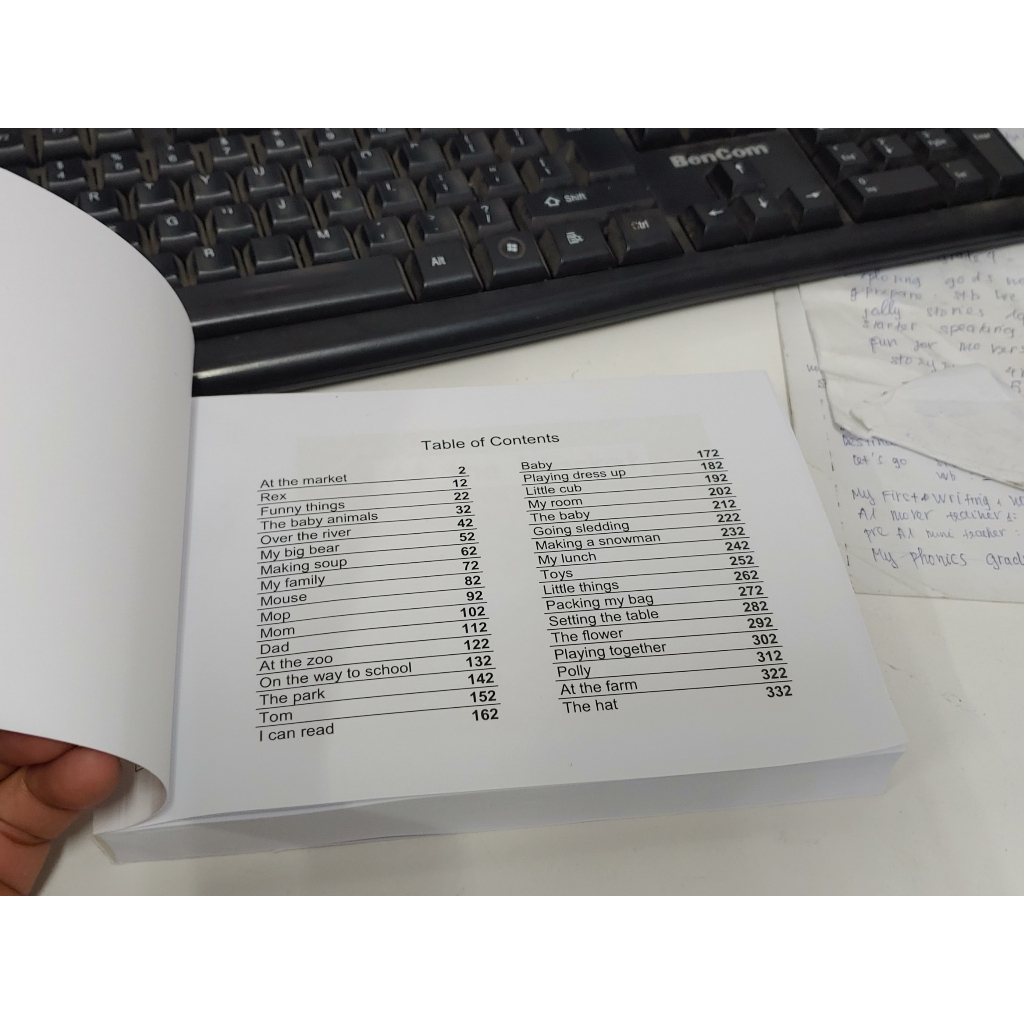 BenCom
Shift
Alt
Ctrl
Table of Contents
At the market 2
Rex 12
Funny things 22
The baby animals 32
Over the river 42
My big bear 52
Making soup 62
My family 72
Mouse 82
Mop 92
Mom 102
Dad 112
At the zoo 122
On the way to school 132
The park 142
Tom 152
I can read 162
Baby 172
Playing dress up 182
Little cub 192
My room 202
The baby 212
Going sledding 222
Making a snowman 232
My lunch 242
Toys 252
Little things 262
Packing my bag 272
Setting the table 282
The flower 292
Playing together 302
Polly 312
At the farm 322
The hat 332
jolly stories
starter speaking
fun for movers
let's go
wb
My First writing
My phonics grad